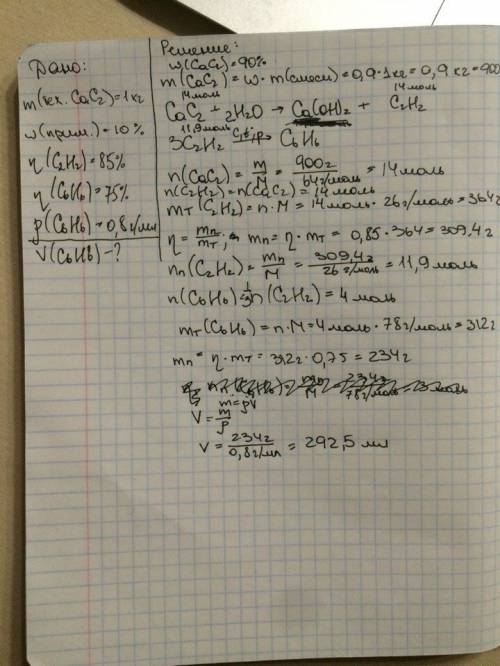 Дано:
m(тех. CaC₂)=1кг
w(прим.)=10%
η(C₂H₂)=85%
η(C₆H₆)=75%
ρ(C₆H₆)=0,8г/мл
V(C₆H₆)-?
Решение:
w(CaC₂)=90%
m(CaC₂)=w·m(смеси)=0,9·1кг=0,9кг=900
14моль 14моль
CaC₂ + 2H₂O → Ca(OH)₂ + C₂H₂
11,9моль
3C₂H₂ C,t,p→ C₆H₆
n(CaC₂)=m/M=900г/64г/моль=14моль
n(C₂H₂)=n(CaC₂)=14моль
mт(C₂H₂)=n·M=14моль·26г/моль=364г
η=mп/mт, mп=η·mт=0,85·364=309,4г
nп(C₂H₂)=mп/M=309,4г/26г/моль=11,9моль
n(C₆H₆)=⅓n(C₂H₂)=4моль
mт(C₆H₆)=n·M=4моль·78г/моль=312г
mп=η·mт=312г·0,75=234г
m=ρV
V=m/ρ
V=234г/0,8г/мл=292,5 мл